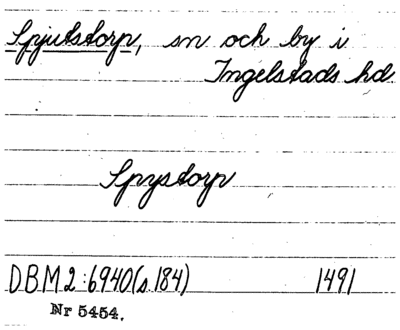 Spjutstorp, sn och by i
Ingelstads hd
Spystorp
DBM 2:6940 (s. 184) 1491
Nr 5454.